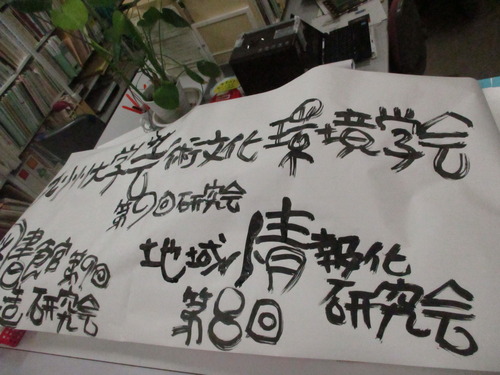 学芸術文化環境学会
第9回研究会
地域情報化
第8回 研究会
図書館第9回
研究会